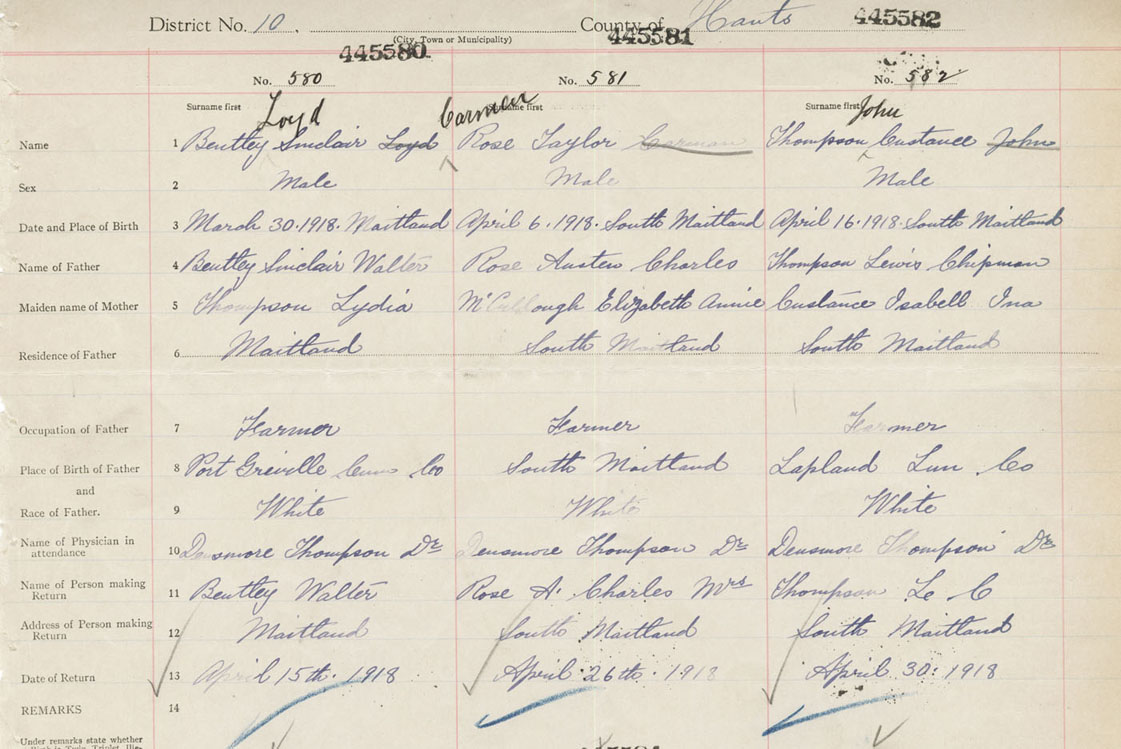 District No. 10. County of Hants 445582
(City, Town or Municipality)
445580 445581
No. 580 No. 581 No. 582
Surname first Surname first Surname first
Loyd Carmen John
Name 1 Bentley Sinclair Loyd Rose Taylor Carman Thompson Custance John
Sex 2 Male Male Male
Date and Place of Birth 3 March 30.1918. Maitland April 6.1918. South Maitland April 16.1918. South Maitland
Name of Father 4 Bentley Sinclair Walter Rose Austen Charles Thompson Lewis Chipman
Maiden name of Mother 5 Thompson Lydia McCullough Elizabeth Annie Custance Isabell Ina
Residence of Father 6 Maitland South Maitland South Maitland
Occupation of Father 7 Farmer Farmer Farmer
Place of Birth of Father 8 Port Greville Cum Co South Maitland Lapland Lun Co
and
Race of Father. 9 White White White
Name of Physician in attendance 10 Densmore Thompson Dr Densmore Thompson Dr Densmore Thompson Dr
Name of Person making Return 11 Bentley Walter Rose A. Charles Mrs Thompson Le C
Address of Person making Return 12 Maitland South Maitland South Maitland
Date of Return 13 April 15th 1918 April 26th 1918 April 30. 1918
REMARKS 14
Under remarks state whether